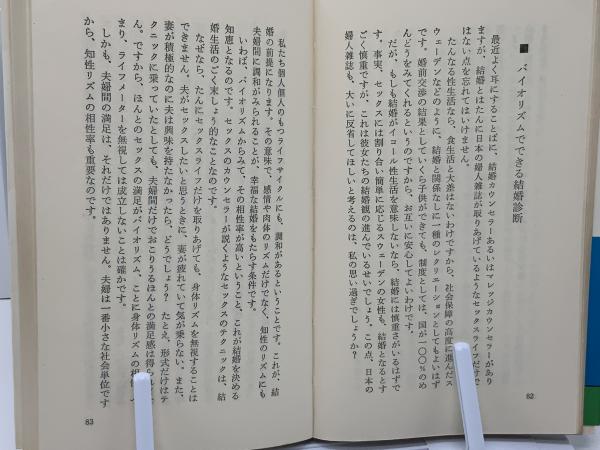 ■ バイオリズムでできる結婚診断
最近よく耳にすることばに、結婚カウンセラーあるいはマレッジカウンセラーがあり
ますが、結婚とはたんに日本の婦人雑誌が取りあげているようなセックスライフだけで
はない点を忘れてはいけません。
たんなる性生活なら、食生活と大差はないわけですから、社会保障の高度に進んだス
ウェーデンなどのように、結婚と関係なしに一種のレクリエーションとしてもよいはず
です。婚前交渉の結果としていくら子供ができても、制度としては、国が一〇〇％のめ
んどうをみてくれるというのですから、お互いに安心してよいわけです。
だが、もしも結婚がイコール性生活を意味しないなら、結婚には慎重さがいるはずで
す。事実、セックスには割り合い簡単に応じるスウェーデンの女性も、結婚となるとす
ごく慎重ですが、これは彼女たちの結婚観の進んでいるせいでしょう。この点、日本の
婦人雑誌も、大いに反省してほしいと考えるのは、私の思い過ぎでしょうか？
82
私たち個人個人のもつライフサイクルにも、調和があるということです。これが、結
婚の前提になります。その意味で、感情や肉体のリズムだけでなく、知性のリズムにも
夫婦間に調和がみられることが、幸福な結婚をもたらす条件です。
いわば、バイオリズムからみて、その相性率が高いということ、これが結婚を決める
知恵となるのです。セックスのカウンセラーが説くようなセックスのテクニックは、結
婚生活のごく末しょう的なことなのです。
なぜなら、たんにセックスライフだけを取りあげても、身体リズムを無視することは
できません。夫がセックスしたいと思うときに、妻が疲れていて気が乗らない。また、
妻が積極的なのに夫は興味を持たなかったら、どうでしょう？ たとえ、形式だけはテ
クニックに乗っていたとしても、夫婦間だけでおこりうるほんとの満足感は得られ
ん。ですから、ほんとのセックスの満足がバイオリズム、ことに身体リズムの相
まり、ライフメーターを無視しては成立しないことは確かです。
しかも、夫婦間の満足は、それだけではありません。夫婦は一番小さな社会単位です
から、知性リズムの相性率も重要なのです。
83